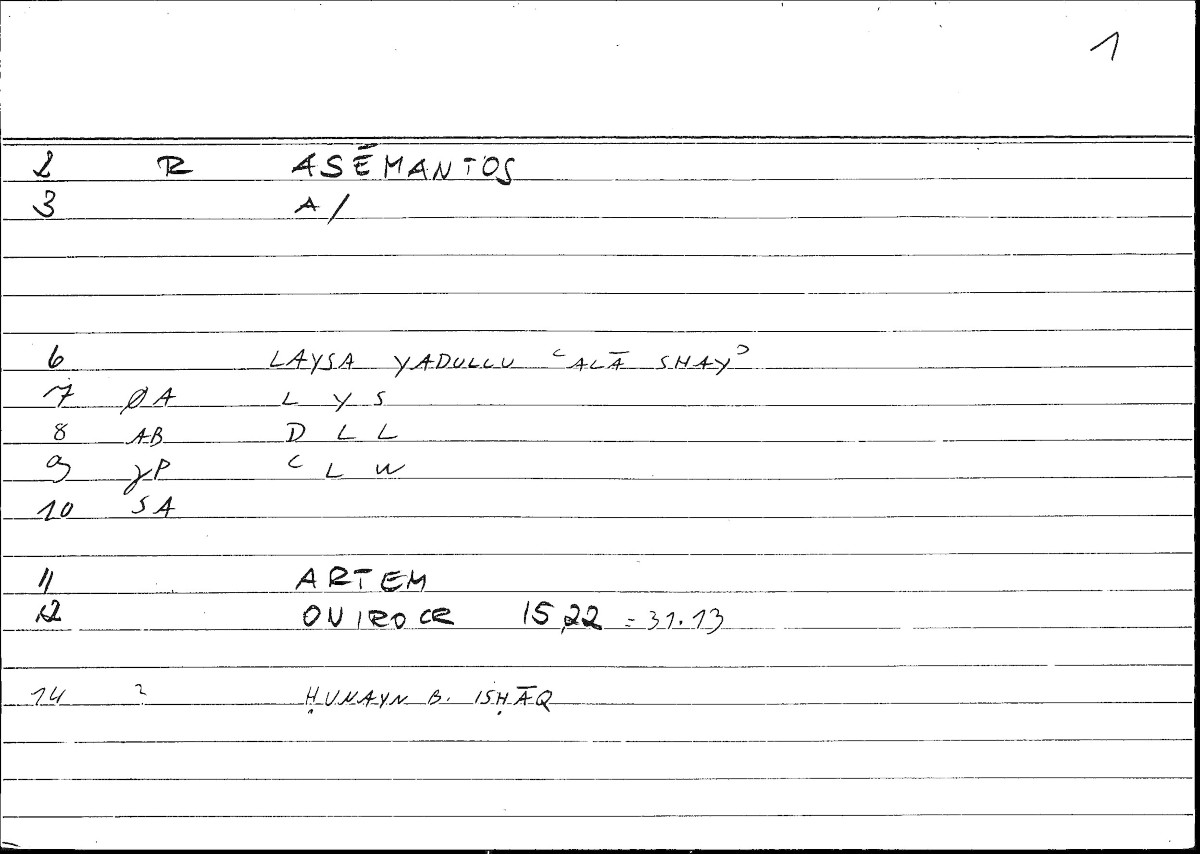 1
2 R ASĒMANTOS
3 A/
6 LAYSA YADULLU ʿALĀ SHAYʾ
7 ØA L Y S
8 AB D L L
9 γP ʿ L W
10 SA
11 ARTEM
12 ONIROCR 15,22 = 31.13
14 2 ḤUNAYN B. ISḤĀQ